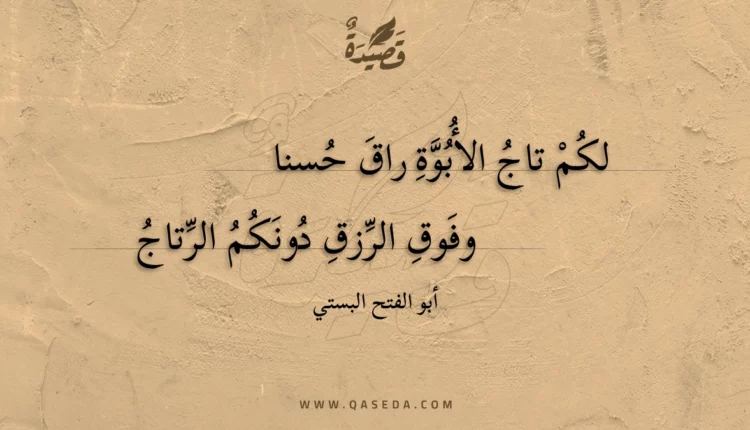 قَصِيدَةٌ
لكُمْ تاجُ الأُبُوَّةِ راقَ حُسنا
وفَوقِ الرِّزقِ دُونَكُمُ الرِّتاجُ
أبو الفتح البستي
WWW.QASEDA.COM